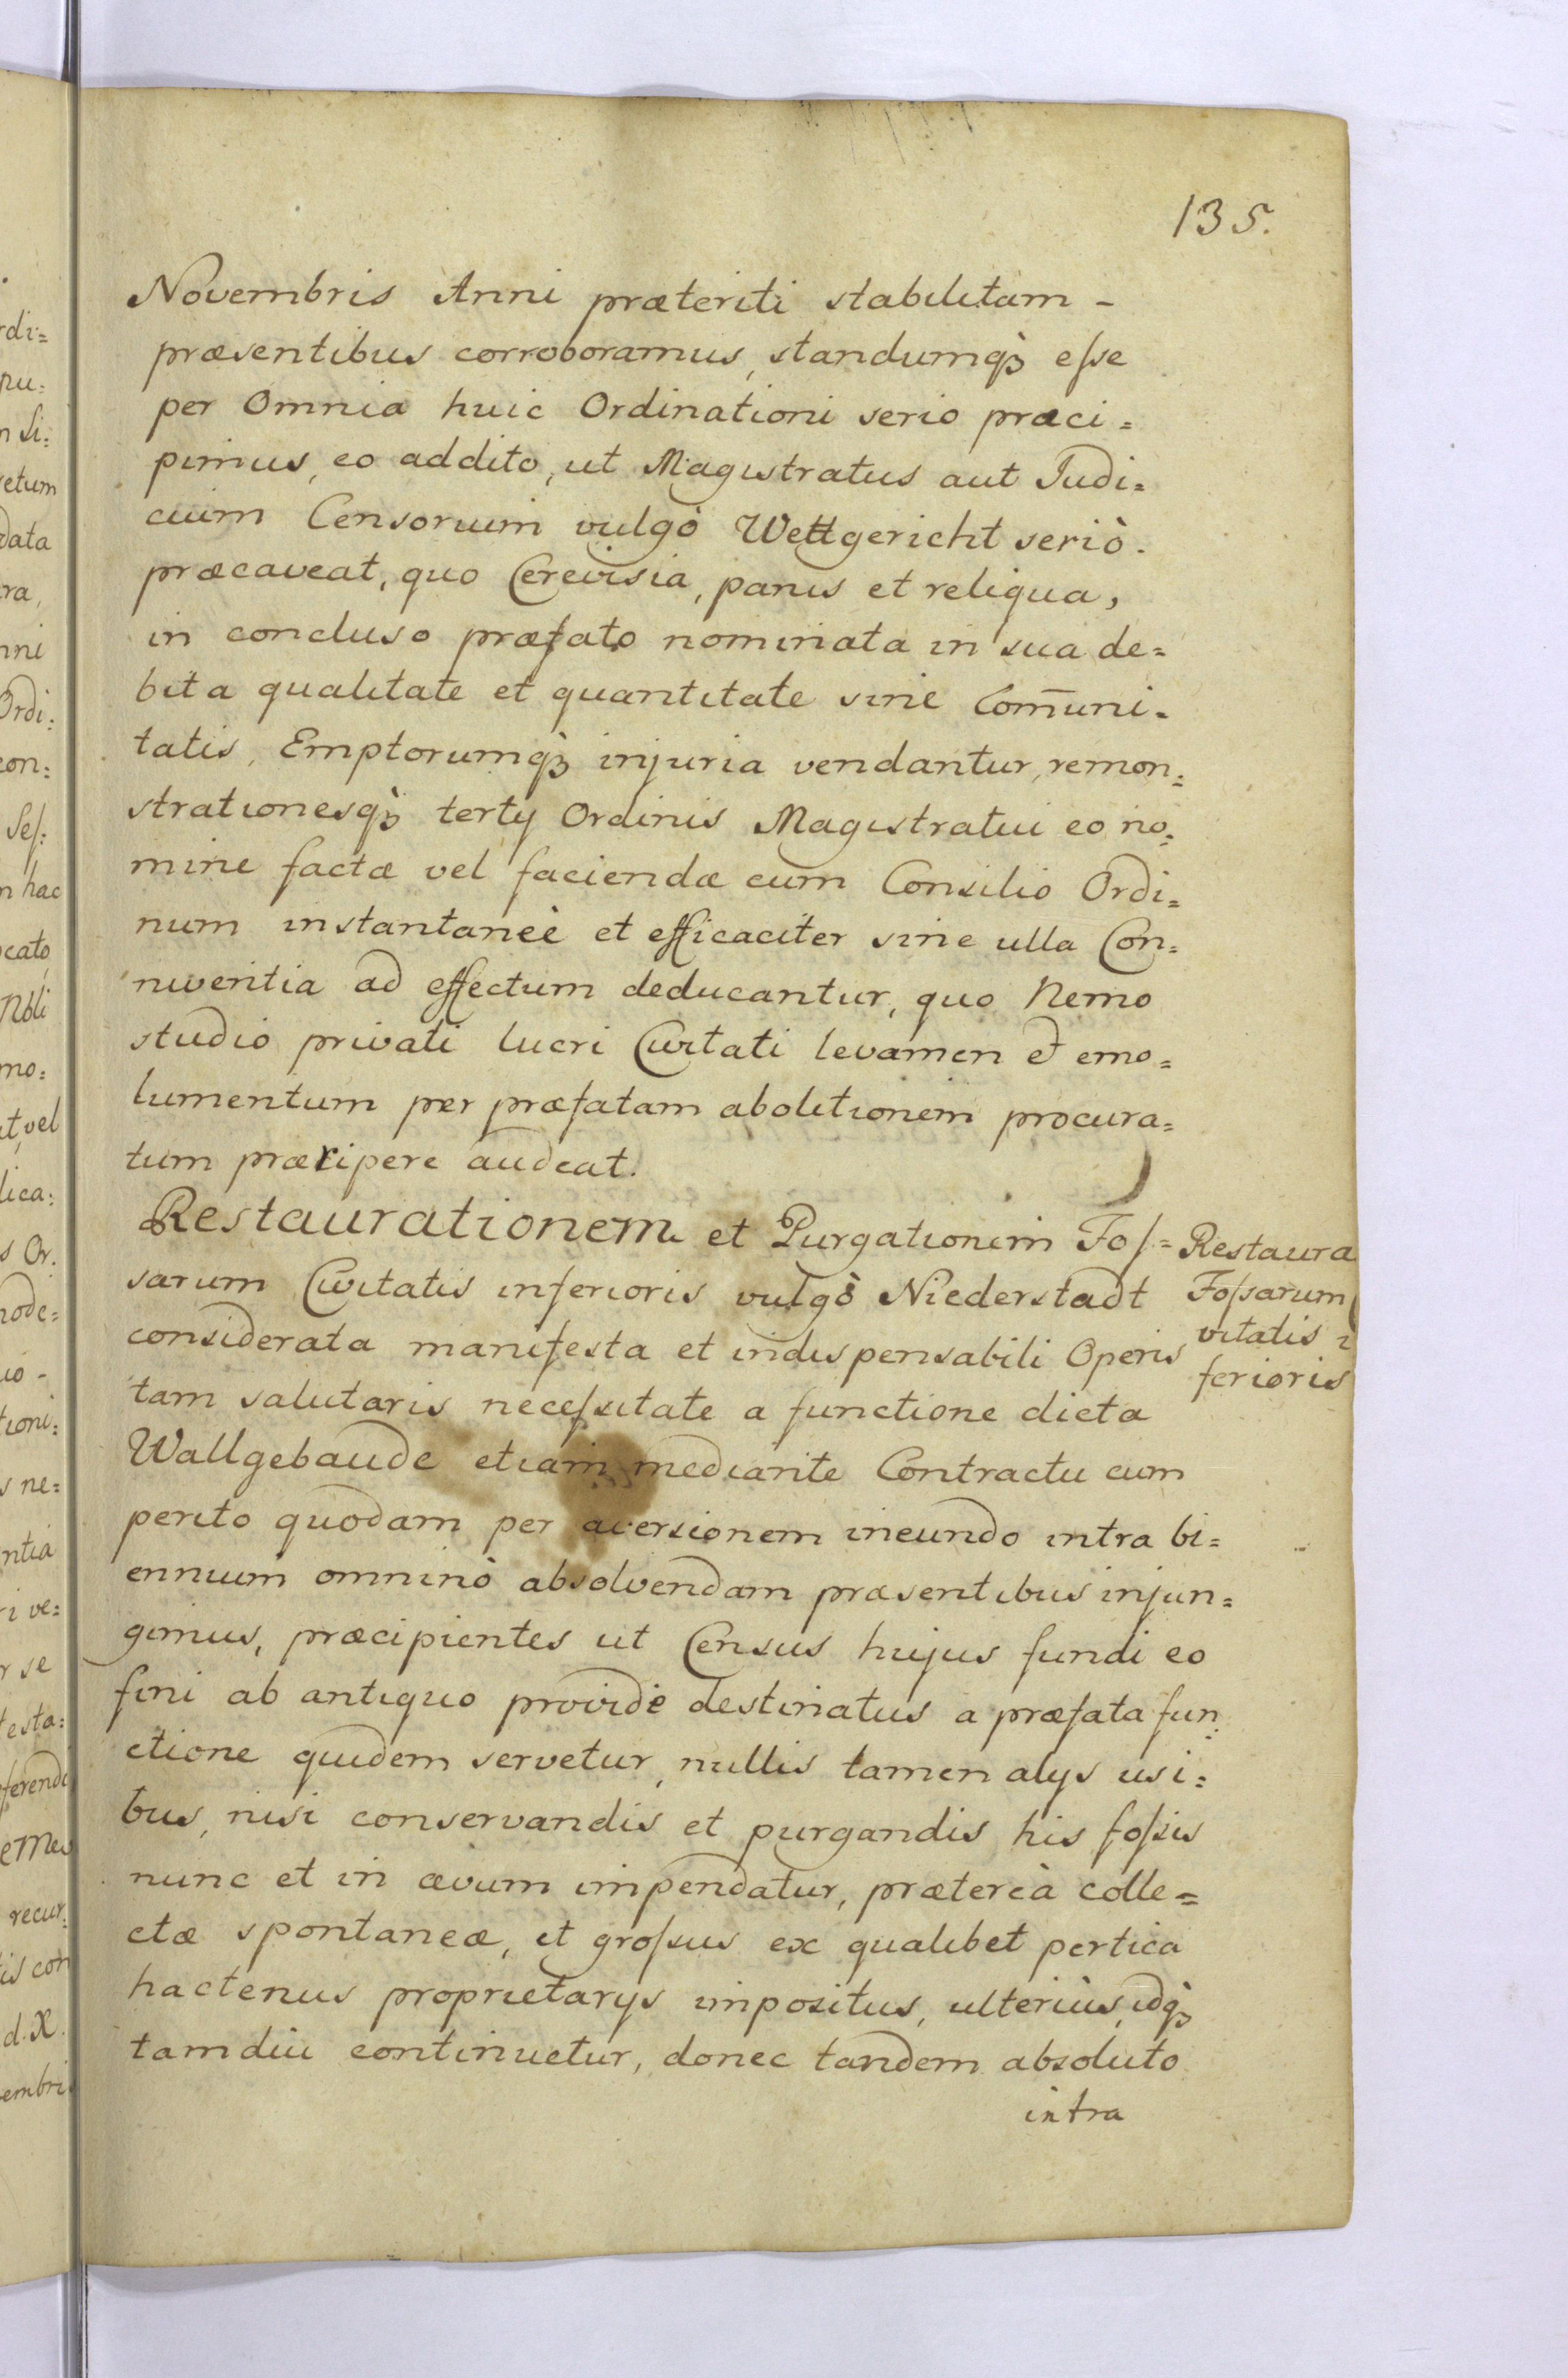 135.
Novembris Anni præteriti stabilitam -
præsentibus corroboramus, standumqꝫ eſse
per Omnia huic Ordinationi serio præci=
pimus, eo addito, ut Magistratus aut Judi=
cium Censorium vulgò Wettgericht seriò.
præcaveat, quo Cerevisia, panis et reliqua,
in concluso præfato nominata in sua de=
bita qualitate et quantitate sine Com̄uni=
tatis, Emptorumqꝫ injuria vendantur, remon=
strationesqꝫ tertÿ Ordinis Magistratui eo no=
mine factæ vel faciendæ cum Consilio Ordi=
num instantaneè et efficaciter sine ulla Con=
niventia ad effectum deducantur, quo Nemo
studio privati lucri Civitati levamen et emo=
lumentum per præfatam abolitionem procura=
tum præripere audeat.
Restaurationem et Purgationem Foſ=
sarum Civitatis inferioris vulgò Niederstadt
considerata manifesta et indispensabili Operis
tam salutaris neceſsitate a functione dicta
Wallgebaude etiam mediante Contractu cum
perito quodam per aversionem ineundo intra bi=
ennium omninò absolvendam præsentibus injun=
gimus, præcipientes ut Census hujus fundi eo
fini ab antiquo providè destinatus a præfata fun=
ctione quidem servetur, nullis tamen alÿs usi=
bus, nisi conservandis et purgandis his foſsis
nunc et in ævum impendatur, prætereà colle=
ctæ spontaneæ, et groſsus ex qualibet pertica
hactenus proprietarÿs impositus, ulteriùs, idqꝫ
tamdiu continuetur, donec tandem absoluto
intra
Restaura
Foſsarum
vitatis i
ferioris
rdi=
etum
data
ra,
nni
Ordi:
con:
Seſ:
n hac
cato
Nbli
mo:
t, vel
lica:
s Or.
node=
tioni:
s ne=
ntia
i ve=
r se
testa:
ferend
recur:
is con
d. X.
embri